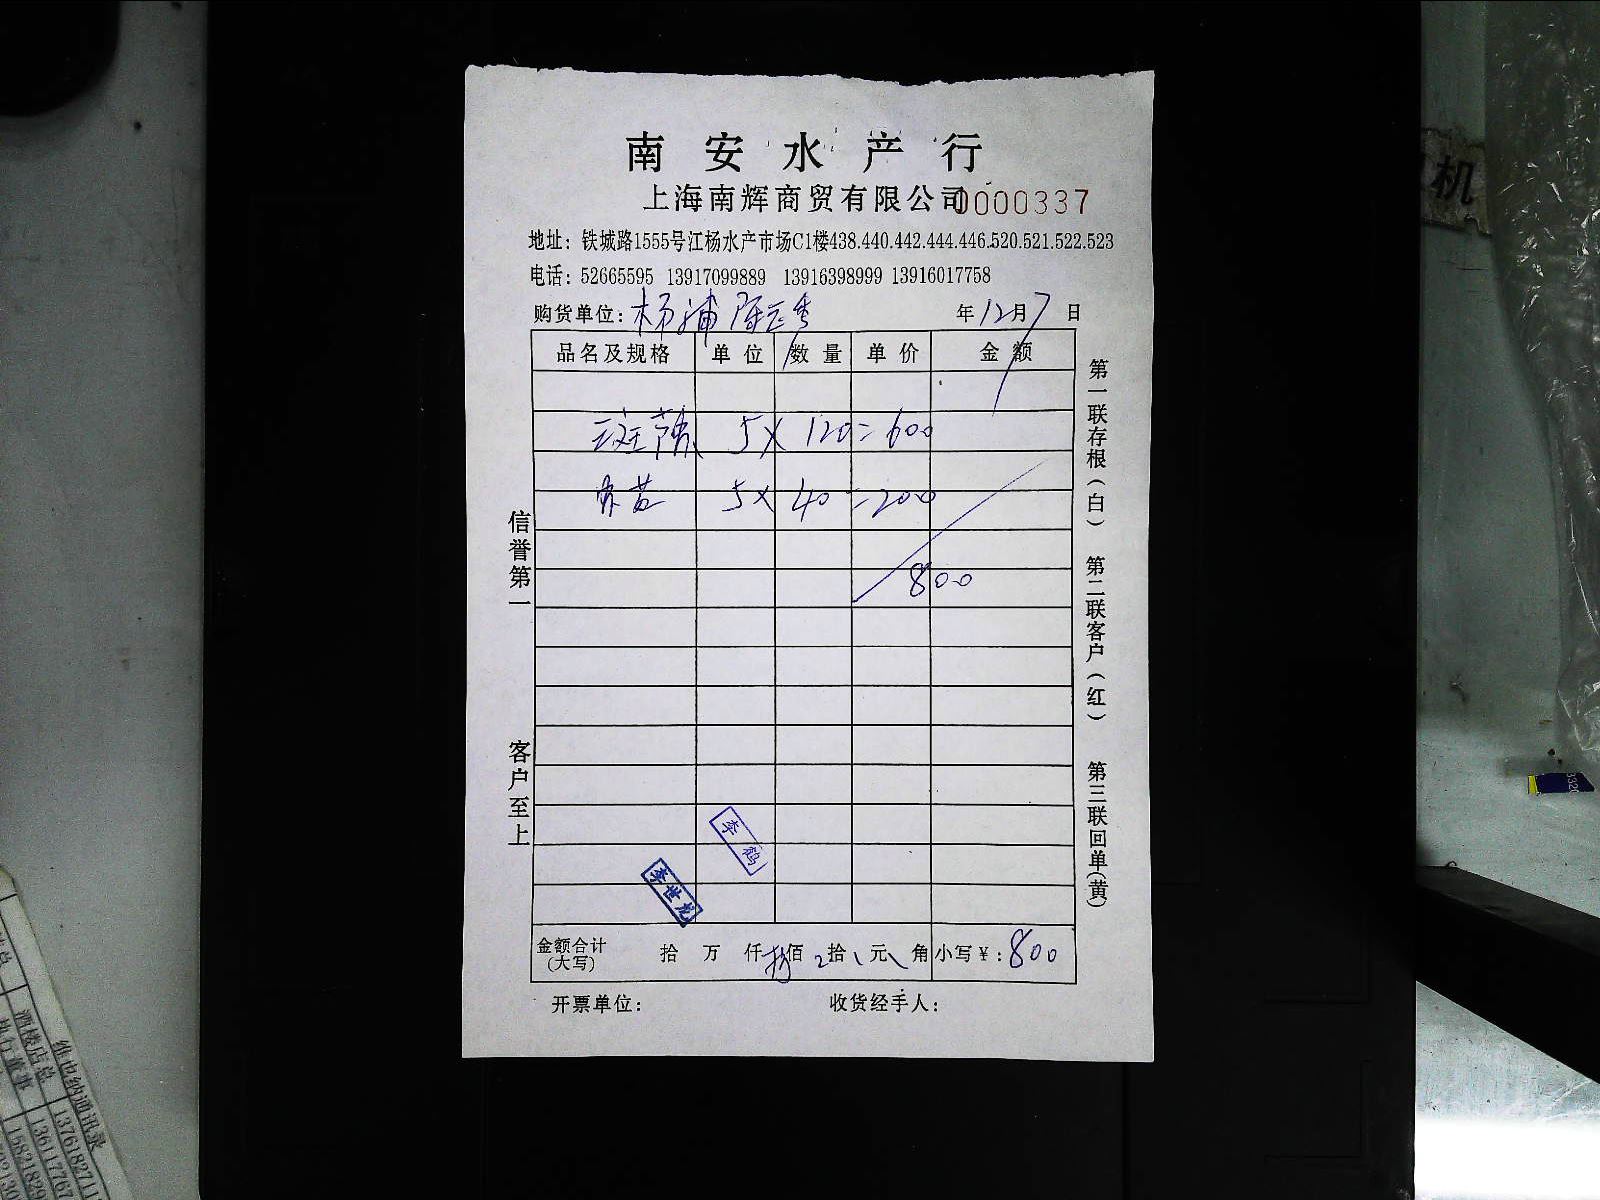 南安水产行
上海南辉商贸有限公司 0000337
地址：铁城路1555号江杨水产市场C1楼438.440.442.444.446.520.521.522.523
电话：52665595 13917099889 13916398999 13916017758
购货单位：杨浦 年12月7日
品名及规格 单位 数量 单价 金额
斑 5X 120=600
5X 40=200
800
金额合计(大写) 拾 万 仟 捌佰 拾 元 角 小写￥：800
开票单位： 收货经手人：
信誉第一
客户至上
第一联存根(白) 第二联客户(红) 第三联回单(黄)
李鹤
李世龙
机
维也纳通讯录
酒楼店总